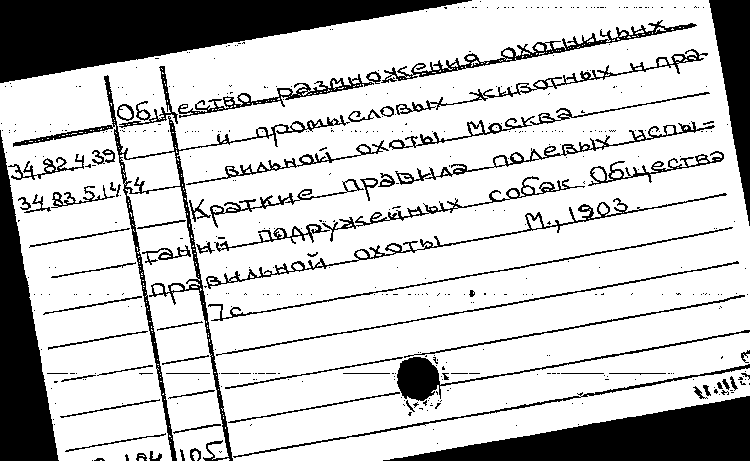 Общество размножения охотничьих
и промысловых животных и пра-
вильной охоты. Москва.
34.82.4.394
34.83.5.1464
Краткие правила полевых испы=
таний подружейных собак Общества
правильной охоты М., 1903.
7с
105